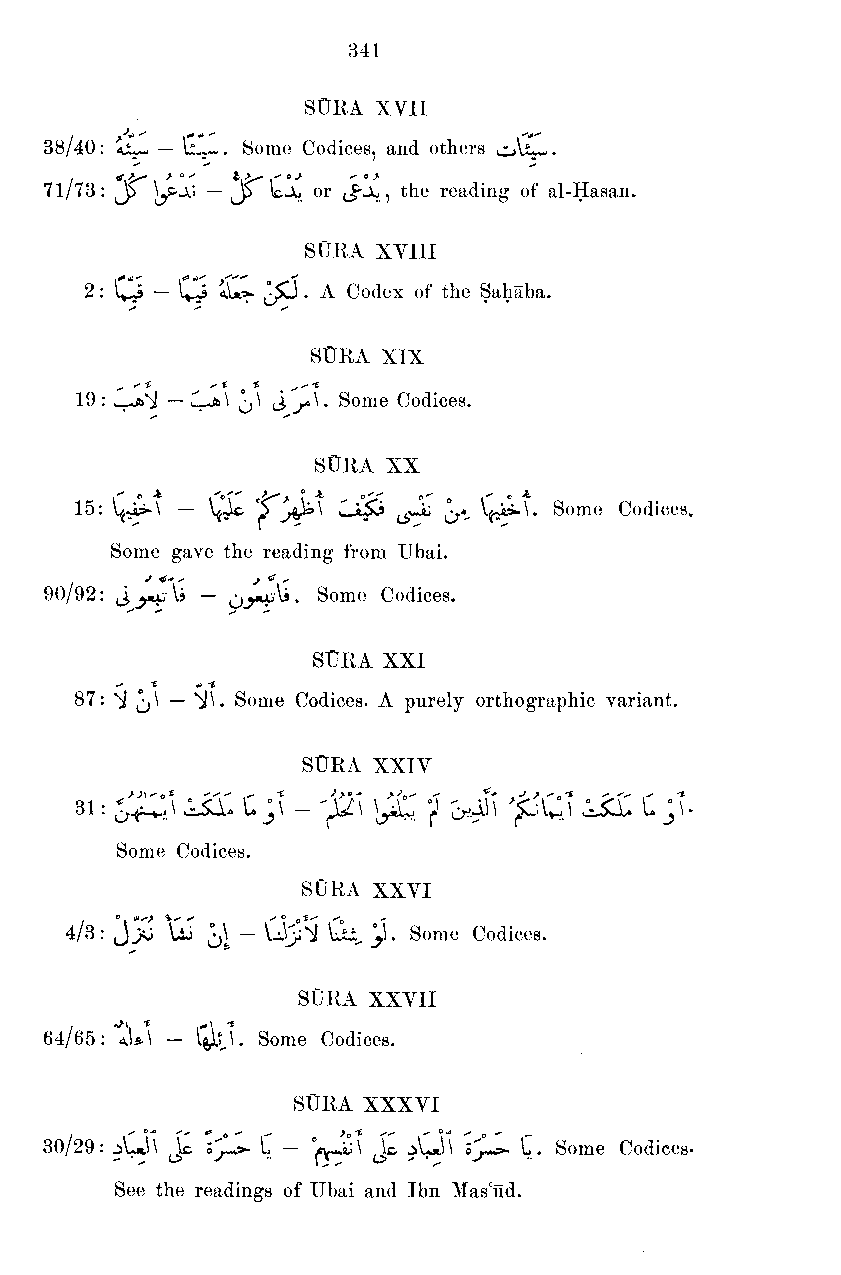 341
SŪRA XVII
38/40: سَيِّئُهُ – سَيِّئًا. Some Codices, and others سَيِّئَات.
71/73: نَدْعُوا كُلَّ – يُدْعَا كُلُّ or يُدْعَى, the reading of al-Ḥasan.
SŪRA XVIII
2: قَيِّمًا – لَكِنْ جَعَلَهُ قَيِّمًا. A Codex of the Ṣaḥāba.
SŪRA XIX
19: لِأَهَبَ – أَمَرَنِى أَنْ أَهَبَ. Some Codices.
SŪRA XX
15: أُخْفِيهَا – أُخْفِيهَا مِنْ نَفْسِى فَكَيْفَ أُظْهِرُكُمْ عَلَيْهَا. Some Codices.
Some gave the reading from Ubai.
90/92: فَٱتَّبِعُونِى – فَاتَّبِعُونِ. Some Codices.
SŪRA XXI
87: أَنْ لَا – أَلَّا. Some Codices. A purely orthographic variant.
SŪRA XXIV
31: أَوْ مَا مَلَكَتْ أَيْمَٰنُهُنَّ – أَوْ مَا مَلَكَتْ أَيْمَانُكُمُ ٱلَّذِينَ لَمْ يَبْلُغُوا ٱلْحُلُمَ.
Some Codices.
SŪRA XXVI
4/3: إِنْ نَشَأْ نُنَزِّلْ – لَوْ شِئْنَا لَأَنْزَلْنَا. Some Codices.
SŪRA XXVII
64/65: أَءِلَٰهٌ – أَئِلٰهًا. Some Codices.
SŪRA XXXVI
30/29: يَا حَسْرَةً عَلَى ٱلْعِبَادِ – يَا حَسْرَةَ ٱلْعِبَادِ عَلَى أَنْفُسِهِمْ. Some Codices.
See the readings of Ubai and Ibn Masʿūd.